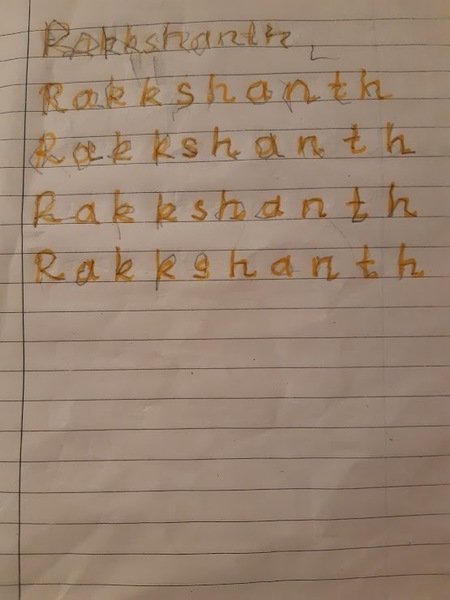 Rakkshanth
Rakkshanth
Rakkshanth
Rakkshanth
Rakkshanth